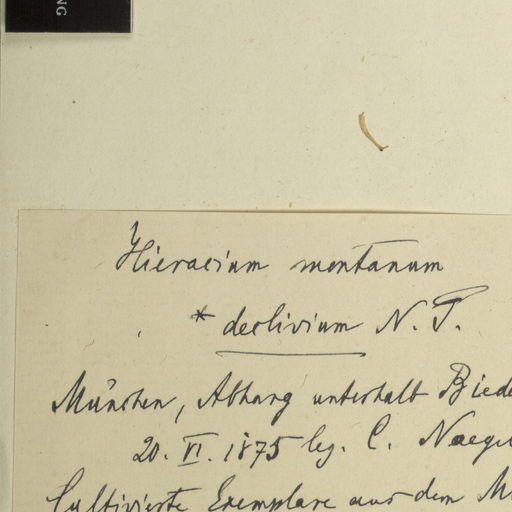 NG
Hieracium montanum
* declivium N. P.
München, Abhang unterhalb Biede
20. VI. 1875 leg. C. Naege
Cultivirte Exemplare aus dem M